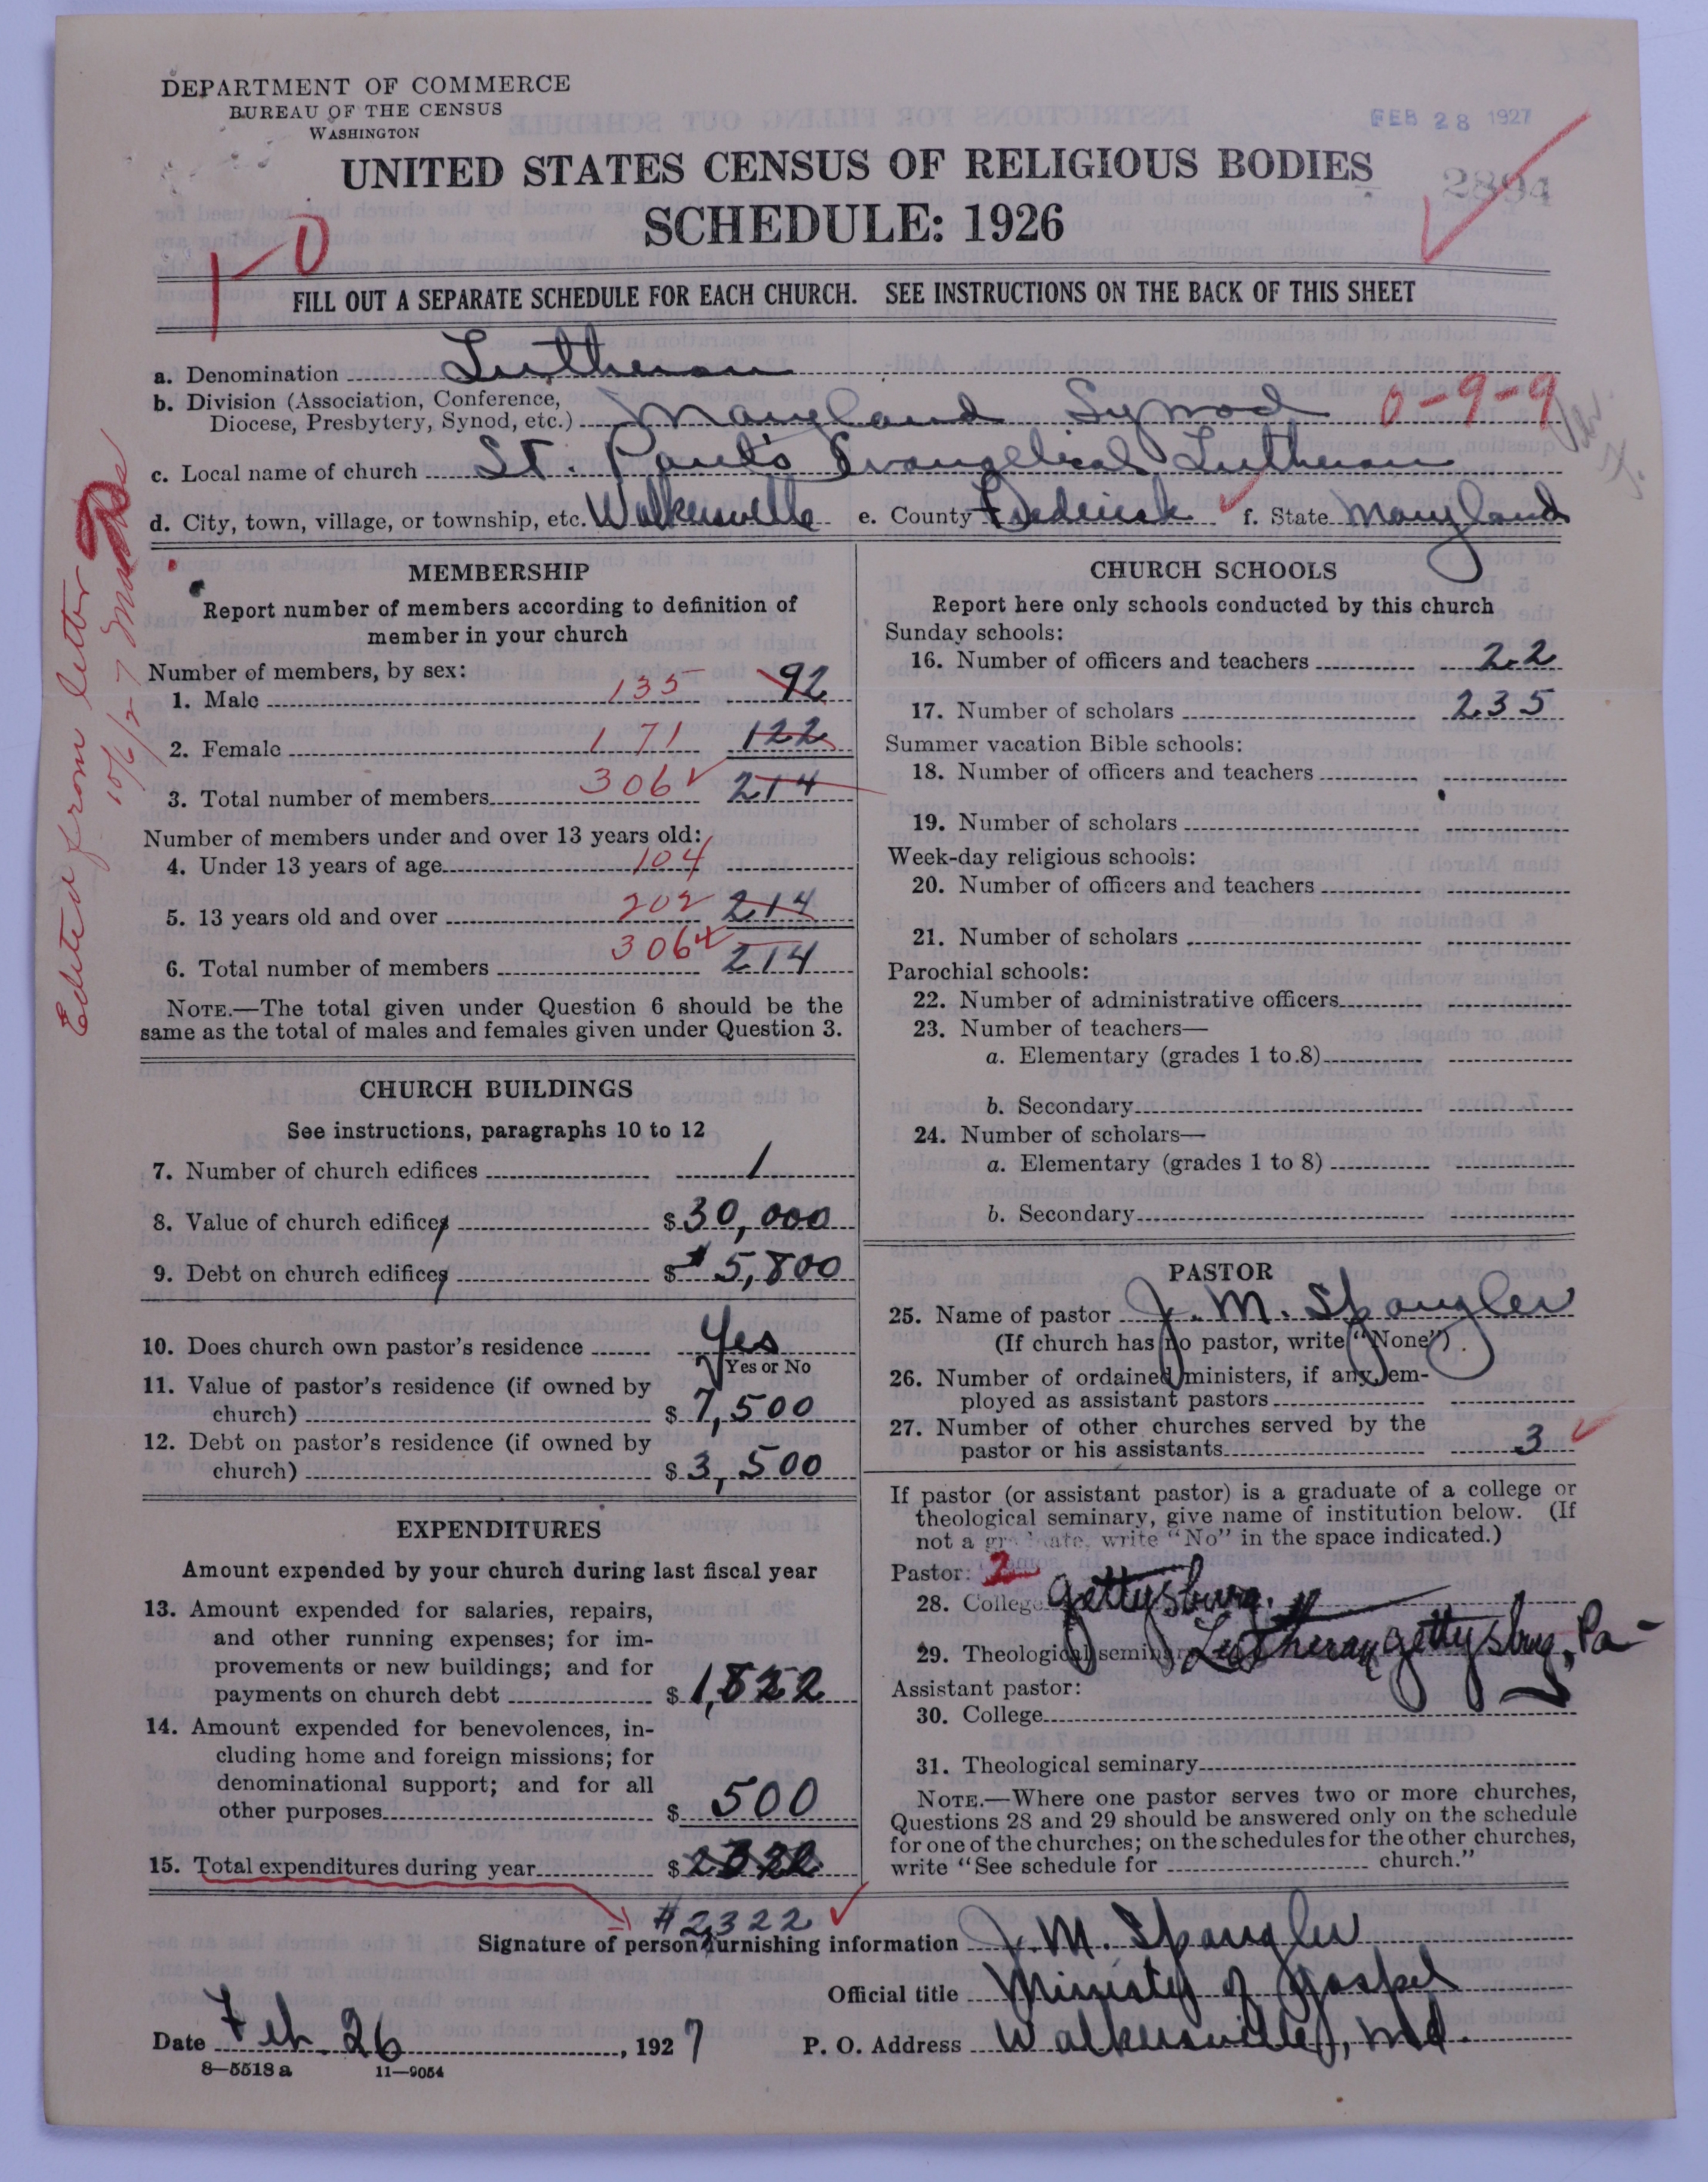 DEPARTMENT OF COMMERCE
BUREAU OF THE CENSUS
WASHINGTON
FEB 28 1927
UNITED STATES CENSUS OF RELIGIOUS BODIES
2894
SCHEDULE: 1926
FILL OUT A SEPARATE SCHEDULE FOR EACH CHURCH. SEE INSTRUCTIONS ON THE BACK OF THIS SHEET
a. Denomination Lutheran
b. Division (Association, Conference,
Diocese, Presbytery, Synod, etc.) Maryland Synod 0-9-9
c. Local name of church St. Paul's Evangelical Lutheran
d. City, town, village, or township, etc. Walkersville e. County Frederick f. State Maryland
Edited from letter
10/6/27
MEMBERSHIP
Report number of members according to definition of
member in your church
Number of members, by sex:
1. Male 135 92
2. Female 171 122
3. Total number of members 306 214
Number of members under and over 13 years old:
4. Under 13 years of age 104
5. 13 years old and over 202 214
6. Total number of members 306 214
NOTE.—The total given under Question 6 should be the
same as the total of males and females given under Question 3.
CHURCH BUILDINGS
See instructions, paragraphs 10 to 12
7. Number of church edifices 1
8. Value of church edifices $ 30,000
9. Debt on church edifices $ 5,800
10. Does church own pastor's residence Yes
Yes or No
11. Value of pastor's residence (if owned by
church) $ 7,500
12. Debt on pastor's residence (if owned by
church) $ 3,500
EXPENDITURES
Amount expended by your church during last fiscal year
13. Amount expended for salaries, repairs,
and other running expenses; for im-
provements or new buildings; and for
payments on church debt $ 1,822
14. Amount expended for benevolences, in-
cluding home and foreign missions; for
denominational support; and for all
other purposes $ 500
15. Total expenditures during year $ 2322
$2322
CHURCH SCHOOLS
Report here only schools conducted by this church
Sunday schools:
16. Number of officers and teachers 22
17. Number of scholars 235
Summer vacation Bible schools:
18. Number of officers and teachers
19. Number of scholars
Week-day religious schools:
20. Number of officers and teachers
21. Number of scholars
Parochial schools:
22. Number of administrative officers
23. Number of teachers—
a. Elementary (grades 1 to 8)
b. Secondary
24. Number of scholars—
a. Elementary (grades 1 to 8)
b. Secondary
PASTOR
25. Name of pastor J. M. Spangler
(If church has no pastor, write "None")
26. Number of ordained ministers, if any, em-
ployed as assistant pastors
27. Number of other churches served by the
pastor or his assistants 3
If pastor (or assistant pastor) is a graduate of a college or
theological seminary, give name of institution below. (If
not a graduate, write "No" in the space indicated.)
Pastor: 2
28. College Gettysburg.
29. Theological seminary Lutheran Gettysburg, Pa-
Assistant pastor:
30. College
31. Theological seminary
NOTE.—Where one pastor serves two or more churches,
Questions 28 and 29 should be answered only on the schedule
for one of the churches; on the schedules for the other churches,
write "See schedule for church."
Signature of person furnishing information J. M. Spangler
Official title Ministy of Gospel
Date Feb. 26, 1927 P. O. Address Walkersville, Md.
8—5518 a 11—9054